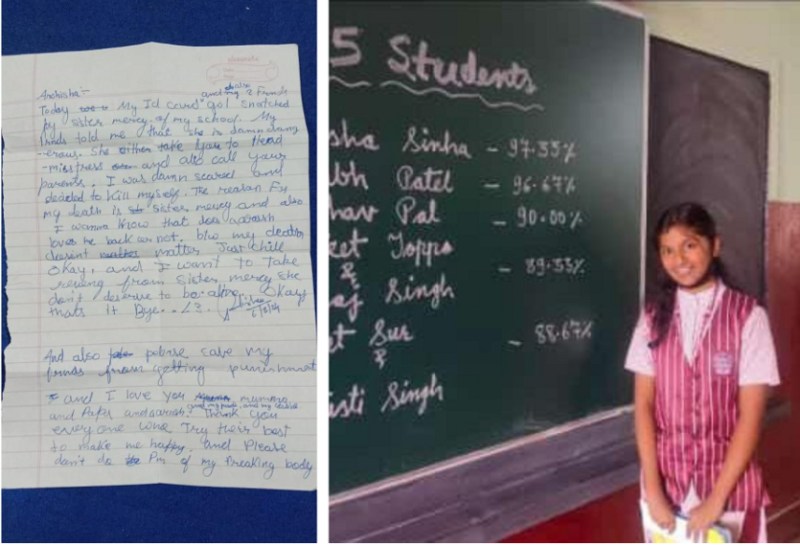 Today My Id card got snatched
and my 2 friends
by sister mercy of my school. My
frnds told me that she is damn dang
-erous. She either take you to Head
-misstress and also call your
parents. I was damn scared and
decided to kill myself. The reason for
my death is sister mercy and also
I wanna know that does aadarsh
loves me back or not. btw my death
doesnt matter Just chill
Okay, and I want to take
reveng from sister mercy she
don't deserve to be alive. Okay
thats it Bye.
And also please save my
frnds from getting punishment
and I love you mummy
and Papa and aarash. Thank you
everyone who Try their best
to make me happy. and Please
don't do Pm of my Breaking body
5 Students
sha Sinha - 97.33%
bh Patel - 96.67%
hav Pal - 90.00%
eet Toppo
& - 89.33%
aj Singh
et Sur
& - 88.67%
isti Singh